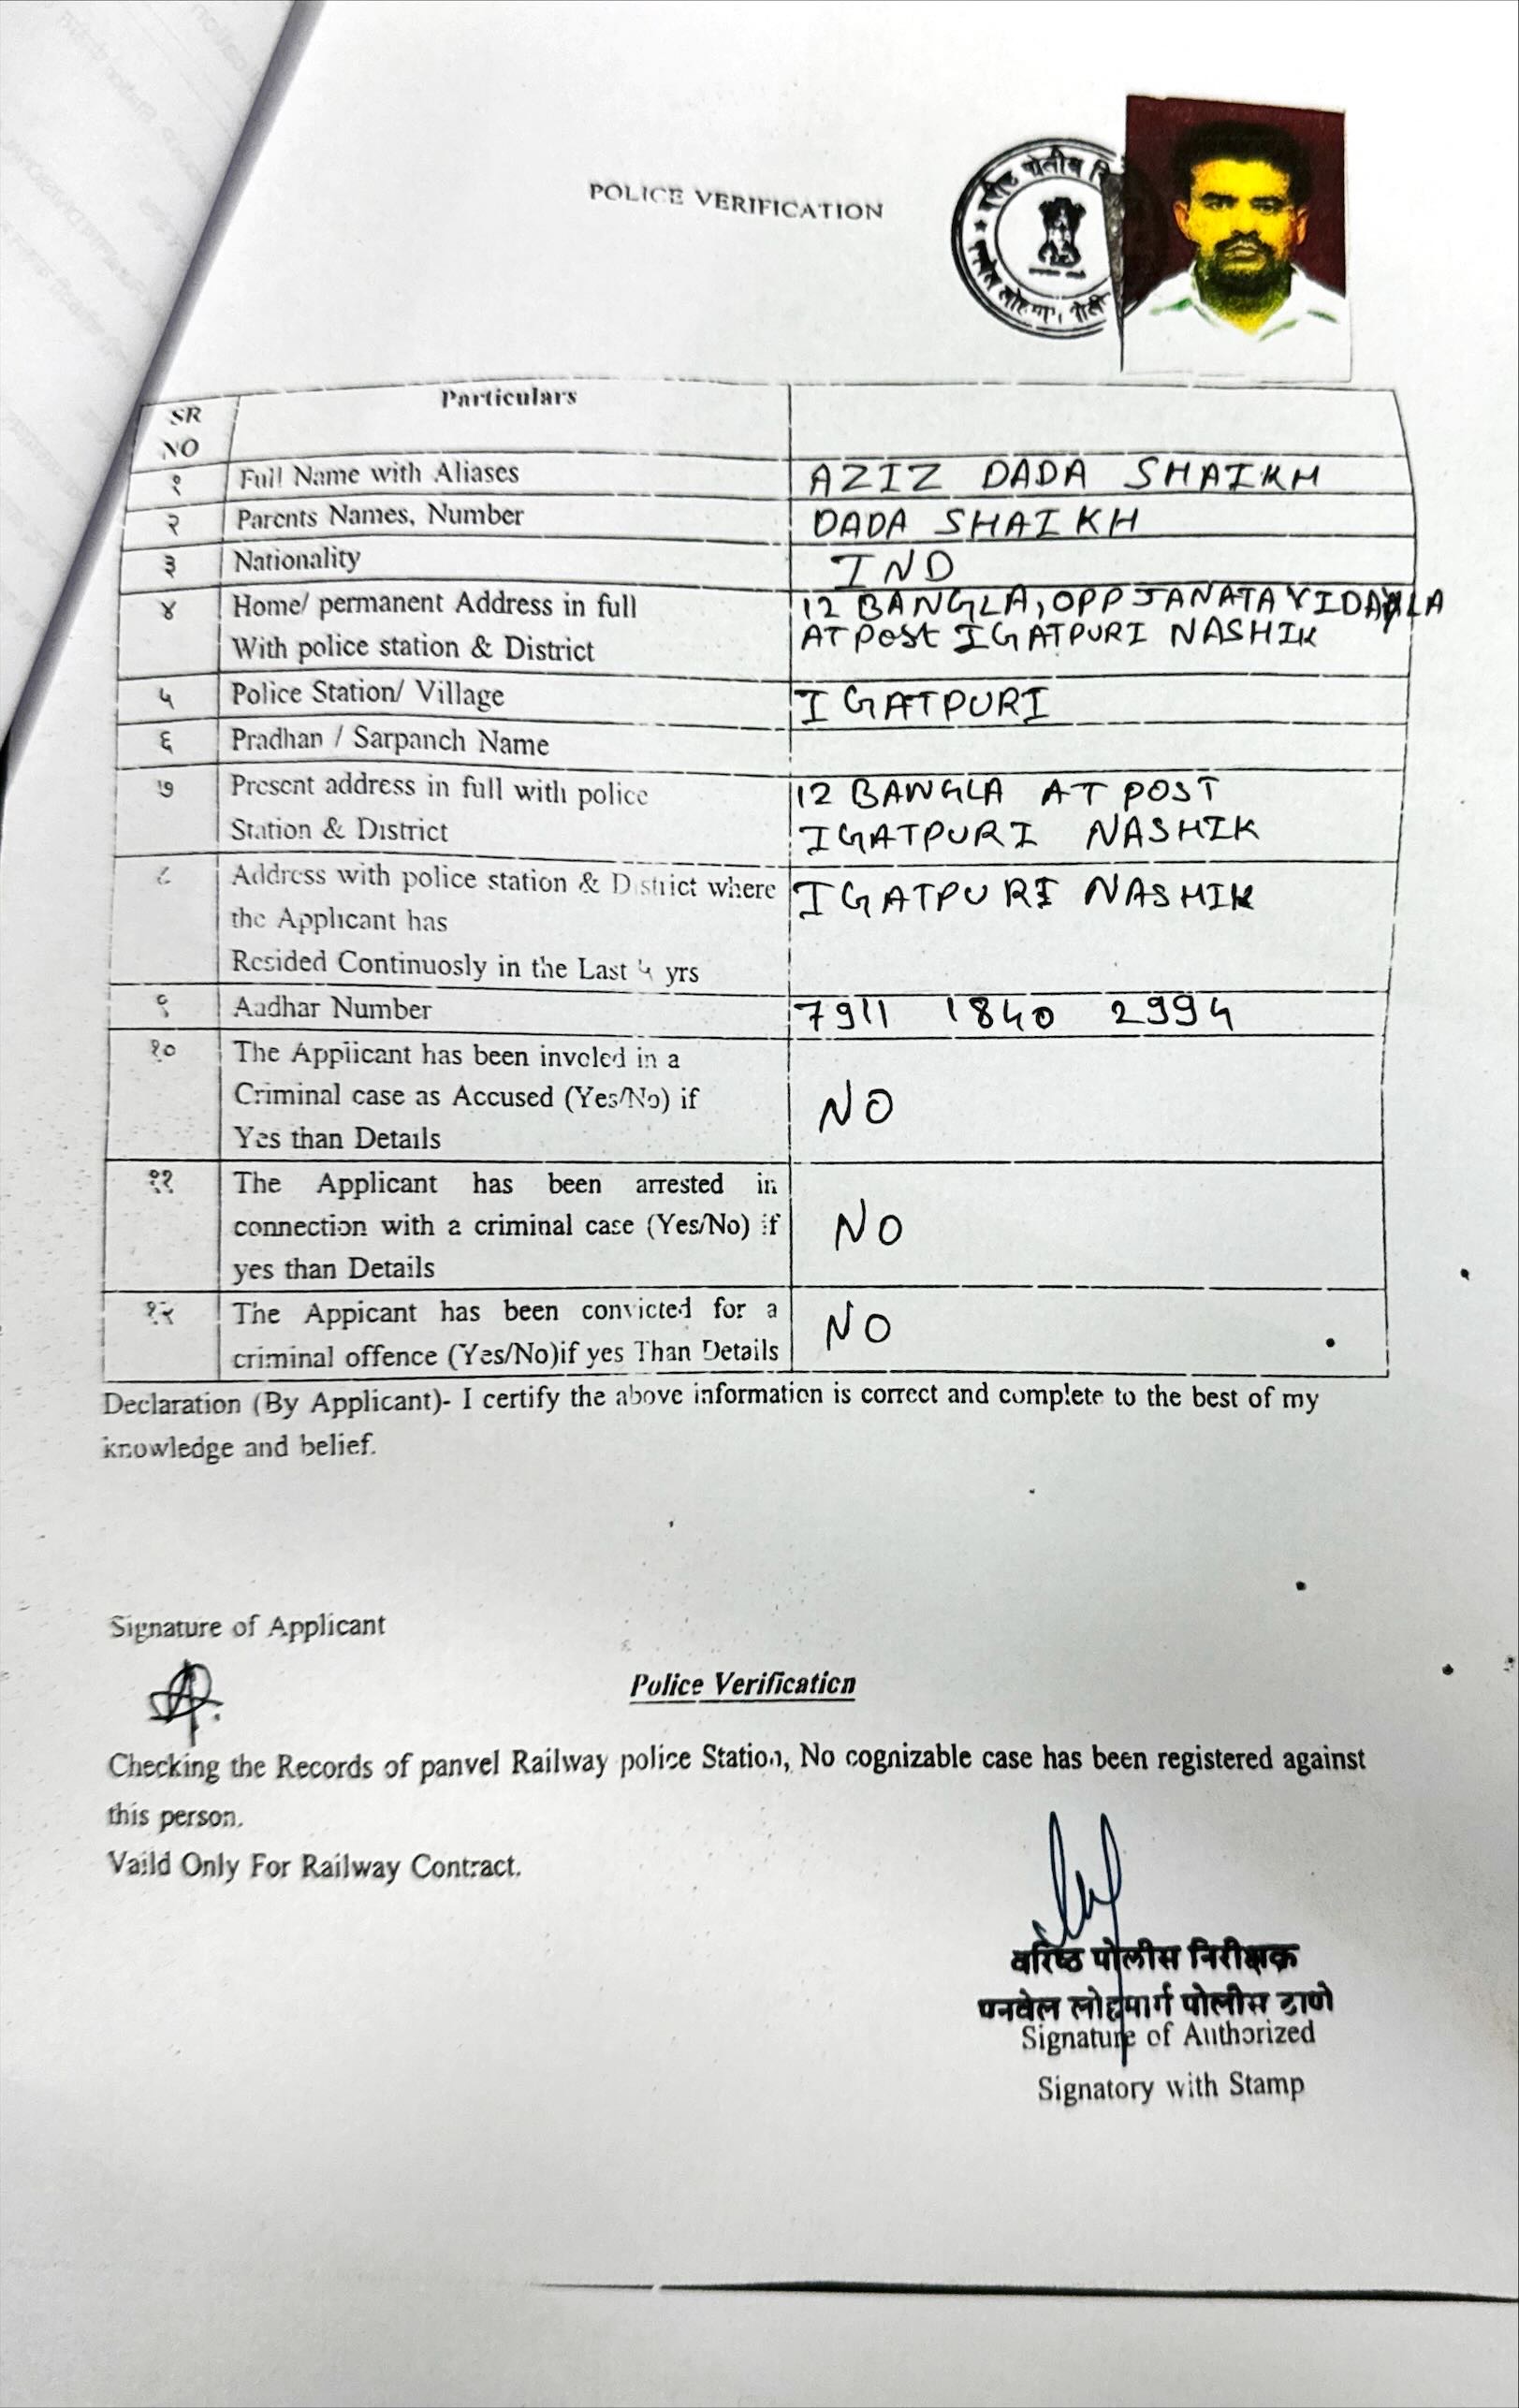 POLICE VERIFICATION
SR
NO
Particulars
१ Full Name with Aliases AZIZ DADA SHAIKH
२ Parents Names, Number DADA SHAIKH
३ Nationality IND
४ Home/ permanent Address in full 12 BANGLA, OPP JANATA VIDAYLA
With police station & District AT POST IGATPURI NASHIK
५ Police Station/ Village IGATPURI
६ Pradhan / Sarpanch Name
७ Present address in full with police 12 BANGLA AT POST
Station & District IGATPURI NASHIK
८ Address with police station & District where IGATPURI NASHIK
the Applicant has
Resided Continuosly in the Last ५ yrs
९ Aadhar Number 7911 1840 2994
१० The Applicant has been involed in a
Criminal case as Accused (Yes/No) if NO
Yes than Details
११ The Applicant has been arrested in
connection with a criminal case (Yes/No) if NO
yes than Details
१२ The Appicant has been convicted for a NO
criminal offence (Yes/No)if yes Than Details
Declaration (By Applicant)- I certify the above information is correct and complete to the best of my
knowledge and belief.
Signature of Applicant
Police Verification
Checking the Records of panvel Railway police Station, No cognizable case has been registered against
this person.
Vaild Only For Railway Contract.
वरिष्ठ पोलीस निरीक्षक
पनवेल लोहमार्ग पोलीस ठाणे
Signature of Authorized
Signatory with Stamp